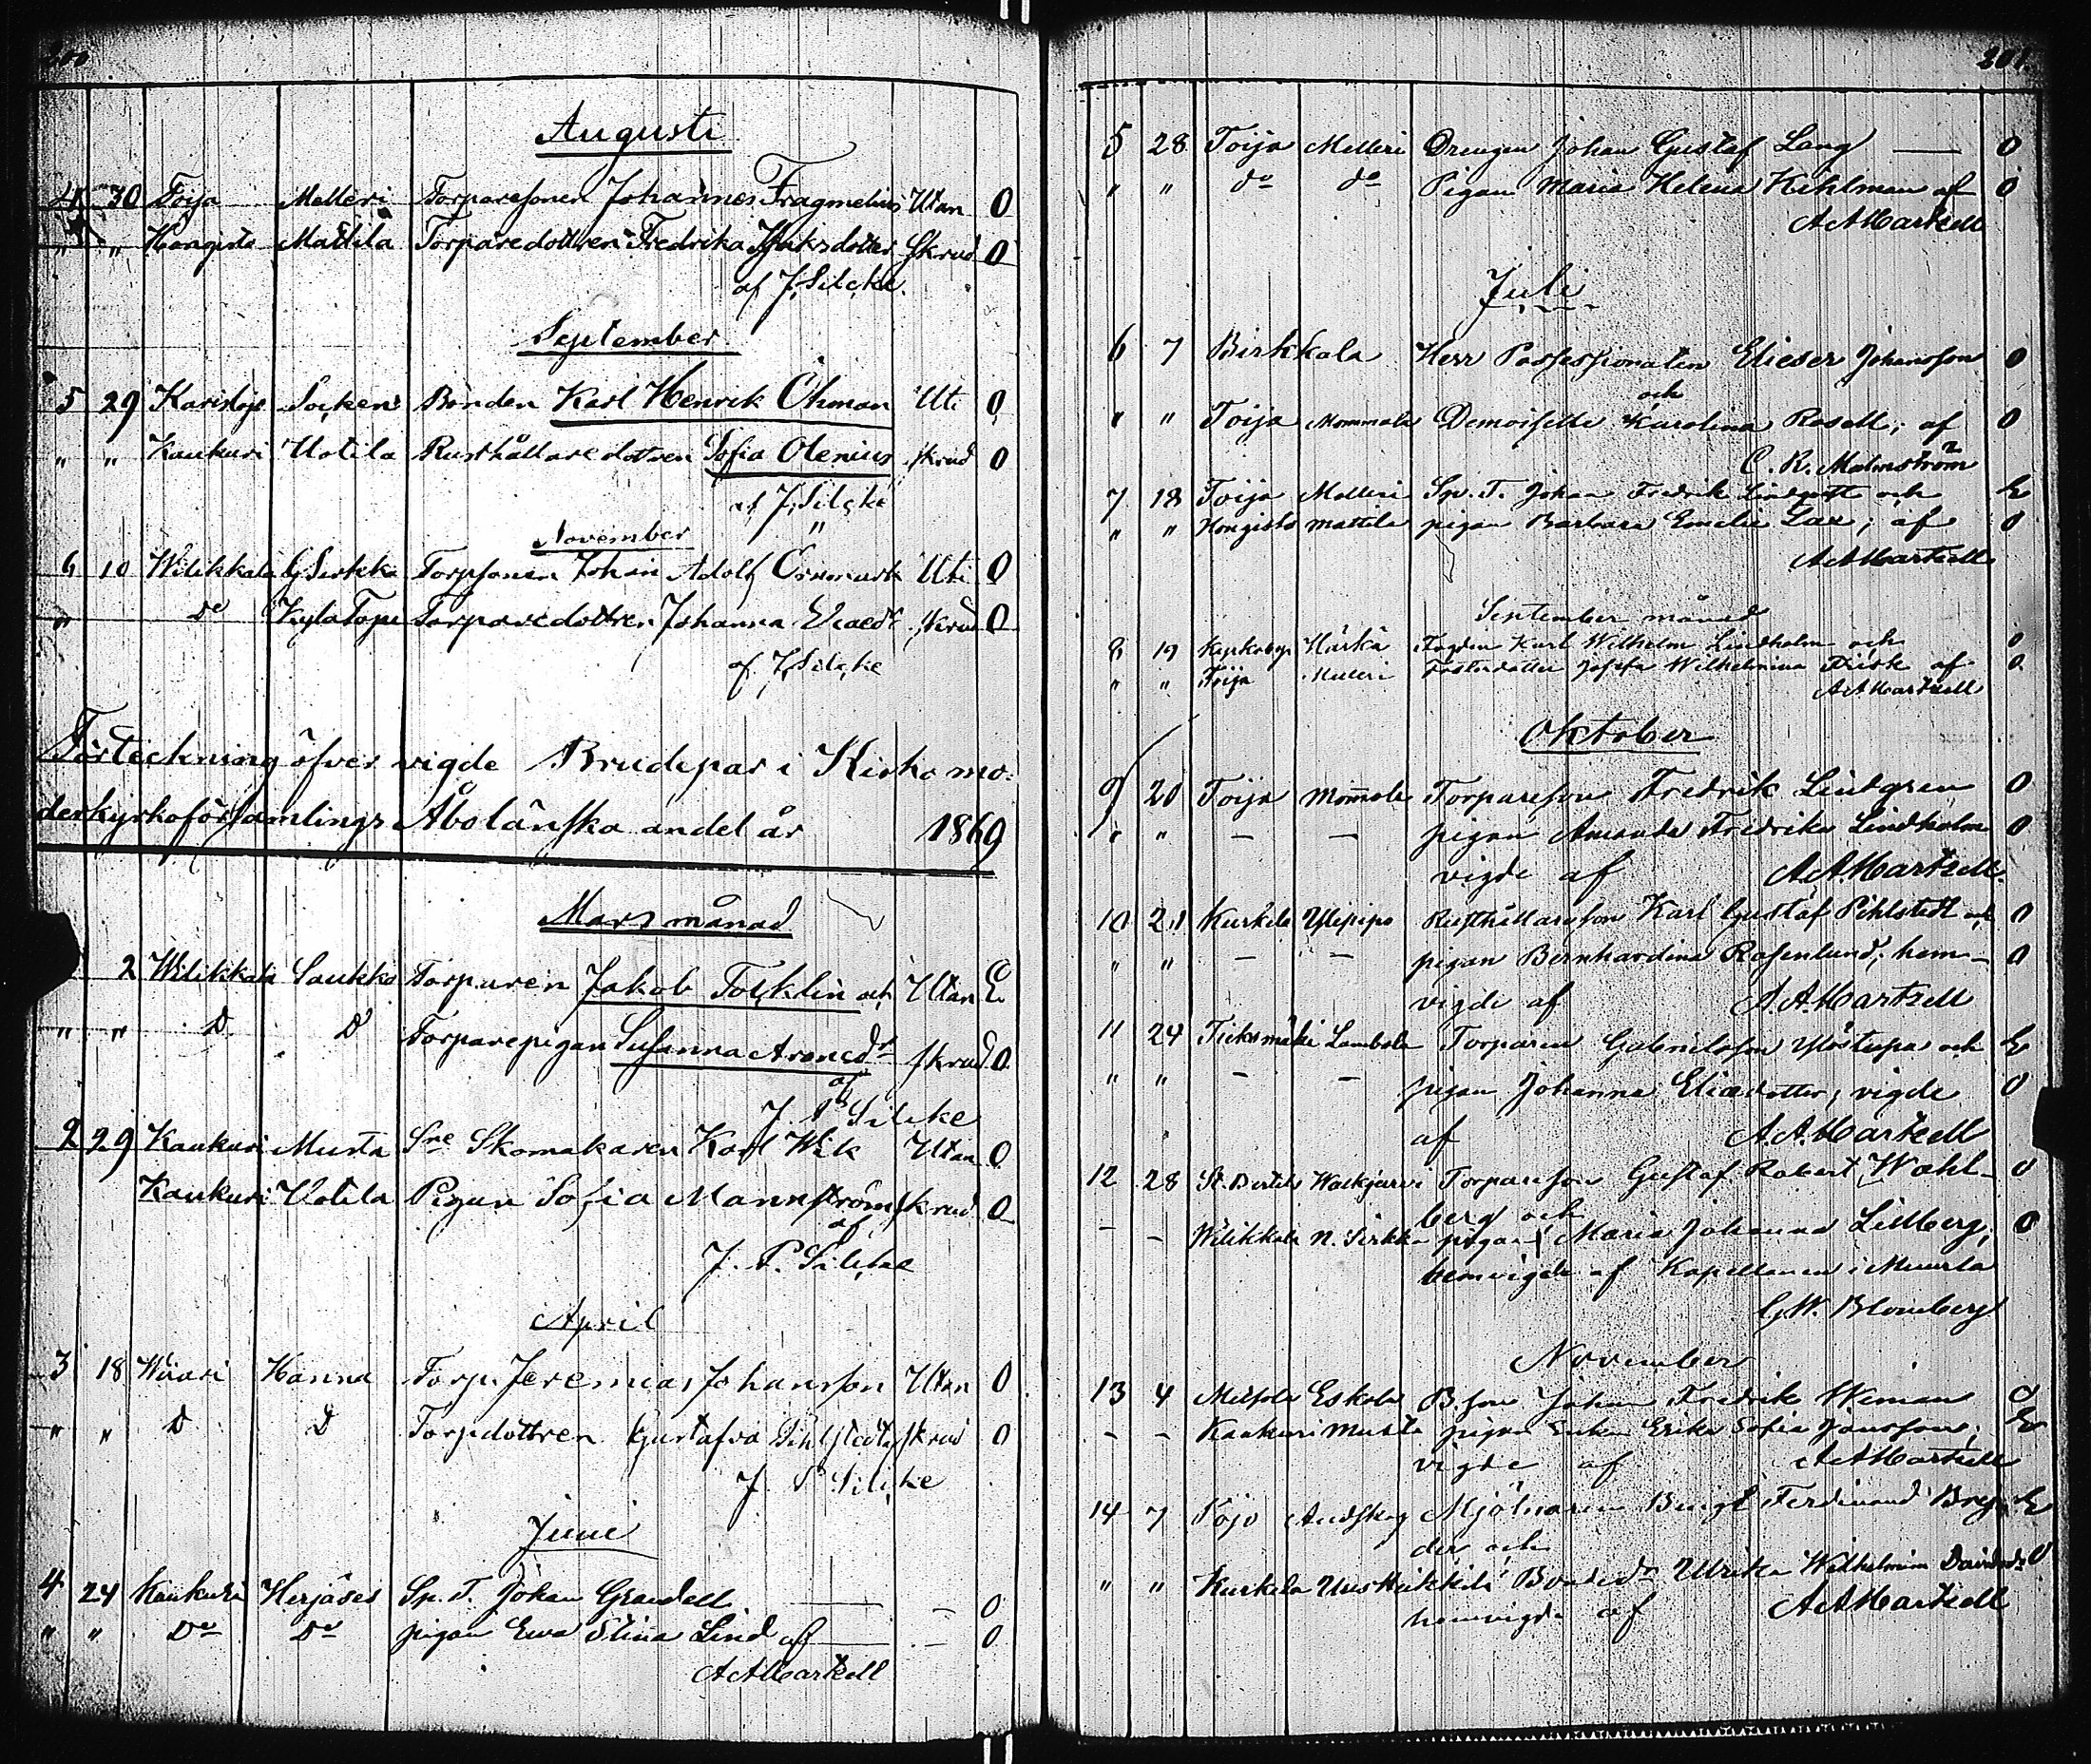 200
Augusti
4 30 Toija Melleri Torparesonen Johannes Fragmelius Utan 0
" " Hongisto Mattila Torparedottren Fredrika Isaksdotter skrud 0
af J. Silcke.
September
5 29 Karislojo Socken Bonden Karl Henrik Öhman Uti 0
" " Kaukuri Uotila Rusthållaredottren Sofia Olenius skrud 0
af J. Silcke
November
6 10 Wilikkala G Sirkka Torpsonen Johan Adolf Örnmark Uti 0
" Do Kylä Topi Torparedottren Johanna skrud 0
af J. Silcke
Förteckning öfver vigde Brudepar i Kisko mo-
derkyrkoförsamlings Åbolänska andel år 1869
Mars månad
2 Wilikkala Saukko Torparen Jakob Tocklin och Utan E.
" " D D Torparepigan Susanna Aronsdr skrud 0.
af
J. P. Silcke
2 29 Kaukuri Musta Sne Skomakaren Karl Wik Utan 0
Kaukuri Uotila Pigan Sofia Mannström skrud 0
af
J. P. Silcke
April
3 18 Wiiari Hanna Torp. Jeremias Johansson Utan 0
" " D D Torpdottren Gustafva Pihlstedt skrud 0
J. P. Silcke
Juni
4 24 Kaukuri Herjäses Sp. T. Johan Grandell — — 0
" " Do Do pigan Ewa Stina Lind af — — 0
A A Hartzell
201.
5 28 Toija Melleri Drengen Johan Gustaf Lang — 0
" " do do Pigan Maria Helena Kihlman af 0
A A Hartzell
Juli
6 7 Birkkala Herr Possessionaten Elieser Johansson 0
och
" " Toija Mommola Demoiselle Karolina Rosell; af 0
C. R. Malmström
7 18 Toija Melleri Sp. T. Johan Fredrik Lindqvist och E
" " Hongisto Mattila pigan Barbara Emelie Lax; af 0
A A Hartzell
September månad
8 19 Härkä Fogden Karl Wilhelm Lindholm och 0
" " Toija Melleri Fosterdotter Josefa Wilhelmina Frisk af 0
A A Hartzell
Oktober
9 20 Toija Mom̄ola Torpareson Fredrik Lindgren 0
" " — — pigan Amanda Fredrika Lindholm 0
vigde af A. A. Hartzell.
10 21 Kurkela Ylipipo Rusthållareson Karl Gustaf Pihlstedt och 0
" " — — pigan Bernhardina Rosenlund; hem- 0
vigde af A. A. Hartzell
11 24 Ticksmäki Lambola Torparen Gabrielsson och E
" " — — pigan Johanna Eliædotter; vigde 0
af A. A. Hartzell
12 28 St. Bertils Torpareson Gustaf Robert Wahl- 0
berg och
— — Wilikkala N. Sirkka pigan Maria Johanna Lillberg; 0
hemvigde af Kapellanen i Muurla
G. W. Blomberg
November
13 4 Eskola B. son Johan Fredrik Wiman 0
— — Kaukuri Musta pigan Enkan Erika Sofia Jansson; E
vigde af A A Hartzell
14 7 Mjölnaren Bengt Ferdinand Bryn- E
der och
" " Kurkela Uusiheikkilä Bonded. Ulrika Wilhelmina Davidsdr 0
hemvigde af A A Hartzell